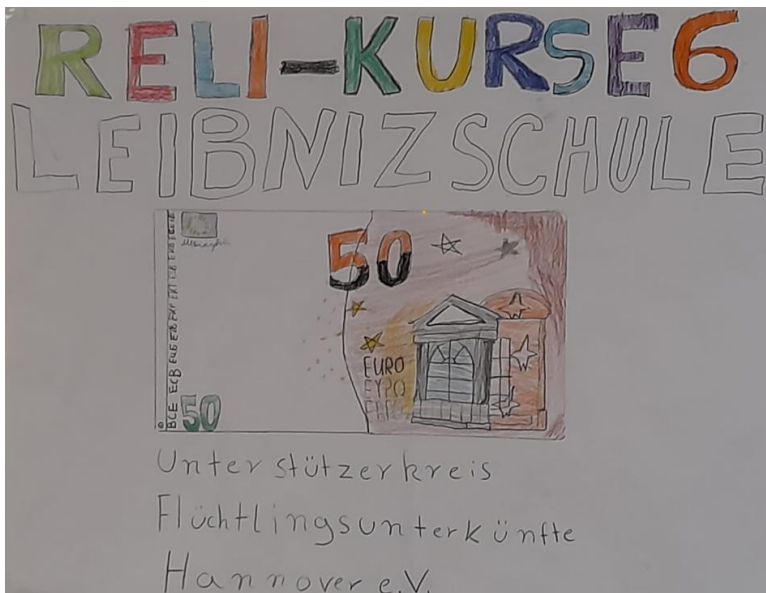 RELI-KURSE 6
LEIBNIZSCHULE
50
EURO
ΕΥΡΩ
50
Unterstützerkreis
Flüchtlingsunterkünfte
Hannover e.V.